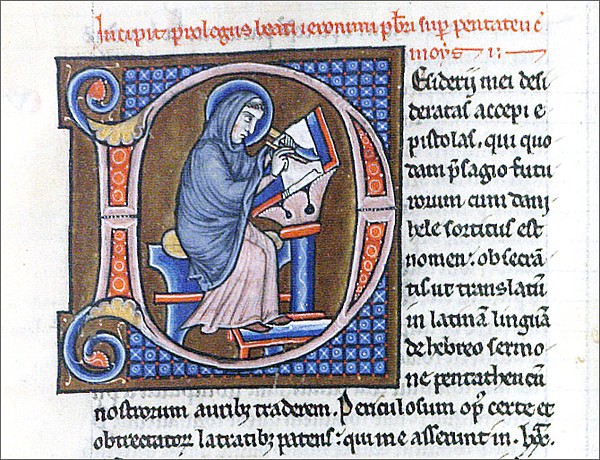 Incipit prologus beati ieronimi pbr̄i sup̄ pentateuc̄
moysi
DEsiderii mei desi
deratas accepi e
pistolas, qui quo
dam p̄sagio futu
rorum cum dani
hele sortitus est
nomen: obsecrā
tis ut translatū
in latinā linguā
de hebreo sermo
ne pentatheucū
nostrorum aurib; traderem. Periculosum opꝰ certe et
obtrectatoꝝ latratib; patens: qui me asserunt in .lxx.